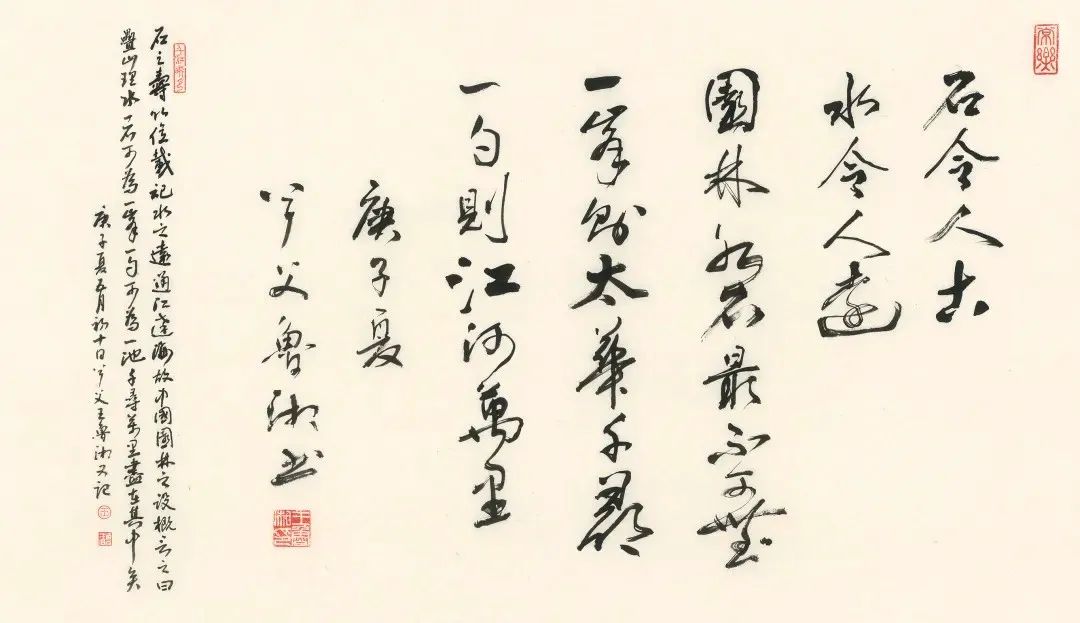 常樂
石令人古
水令人遠
園林水石最不可無
一峯則太華千尋
一勺則江河萬里
庚子夏
父魯湘書
石之壽以億載記水之遠通江達海故中國園林之設概言之曰
疊山理水一石可為一峯一勺可為一池千尋萬里盡在其中矣
庚子夏五月初十日父王魯湘又記